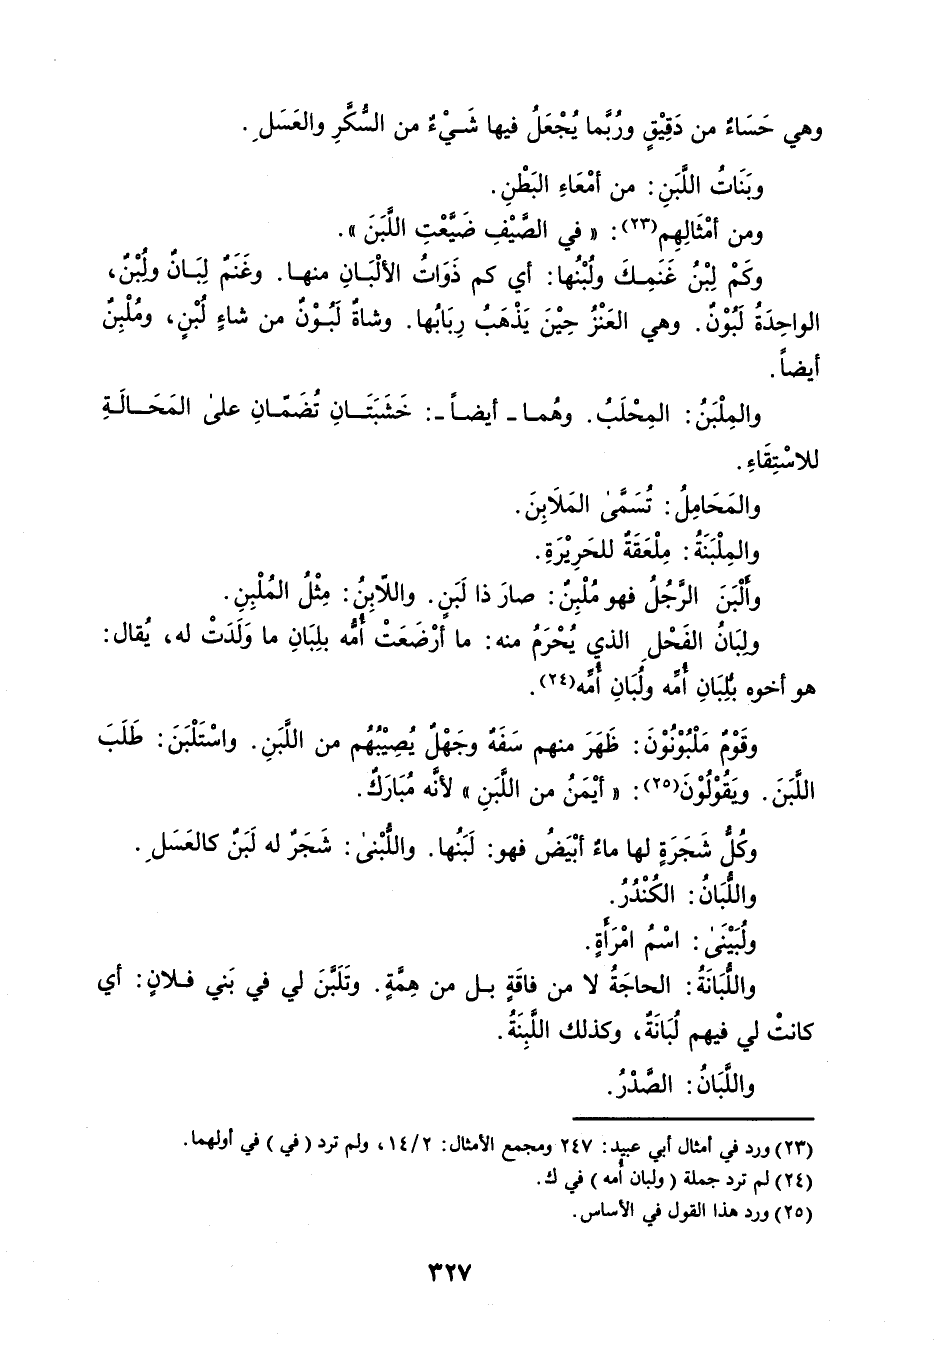 وهي حَسَاءٌ من دَقِيْقٍ ورُبَّما يُجْعَلُ فيها شَيْءٌ من السُّكَّرِ والعَسَلِ.
وبَنَاتُ اللَّبَنِ: من أمْعَاءِ البَطْنِ.
ومن أمْثَالِهِم(٢٣): « في الصَّيْفِ ضَيَّعْتِ اللَّبَنَ ».
وكَمْ لِبْنُ غَنَمِكَ ولُبْنُها: أي كم ذَوَاتُ الألْبَانِ منها. وغَنَمٌ لِبَانٌ ولُبْنٌ،
الواحِدَةُ لَبُوْنٌ. وهي العَنْزُ حِيْنَ يَذْهَبُ رِبَابُها. وشاةٌ لَبُوْنٌ من شاءٍ لُبْنٍ، ومُلْبِنٌ
أيضاً.
والمِلْبَنُ: المِحْلَبُ. وهُما ـ أيضاً ـ: خَشَبَتَانِ تُضَمَّانِ على المَحَالَةِ
للاسْتِقَاءِ.
والمَحَامِلُ: تُسَمَّى المَلَابِنَ.
والمِلْبَنَةُ: مِلْعَقَةٌ للحَرِيْرَةِ.
وأَلْبَنَ الرَّجُلُ فهو مُلْبِنٌ: صارَ ذا لَبَنٍ. واللّابِنُ: مِثْلُ المُلْبِنِ.
ولِبَانُ الفَحْلِ الذي يُحْرَمُ منه: ما أرْضَعَتْ أُمُّه بلِبَانِ ما وَلَدَتْ له، يُقال:
هو أخوه بلِبَانِ أُمِّه ولُبَانِ أُمِّه(٢٤).
وقَوْمٌ مَلْبُوْنُوْنَ: ظَهَرَ منهم سَفَهٌ وجَهْلٌ يُصِيْبُهُم من اللَّبَنِ. واسْتَلْبَنَ: طَلَبَ
اللَّبَنَ. ويَقُوْلُوْنَ(٢٥): « أيْمَنُ من اللَّبَنِ » لأنَّه مُبَارَكٌ.
وكُلُّ شَجَرَةٍ لها ماءٌ أبْيَضُ فهو: لَبَنُها. واللُّبْنى: شَجَرٌ له لَبَنٌ كالعَسَلِ.
واللُّبَانُ: الكُنْدُرُ.
ولُبَيْنَى: اسْمُ امْرَأَةٍ.
واللُّبَانَةُ: الحاجَةُ لا من فاقَةٍ بل من هِمَّةٍ. وتَلَبَّنَ لي في بَني فلانٍ: أي
كانتْ لي فيهم لُبَانَةٌ، وكذلك اللَّبِنَةُ.
واللَّبَانُ: الصَّدْرُ.
(٢٣) ورد في أمثال أبي عبيد: ٢٤٧ ومجمع الأمثال: ١٤/٢، ولم ترد ( في ) في أولهما.
(٢٤) لم ترد جملة ( ولبان أُمه ) في ك.
(٢٥) ورد هذا القول في الأساس.
٣٢٧